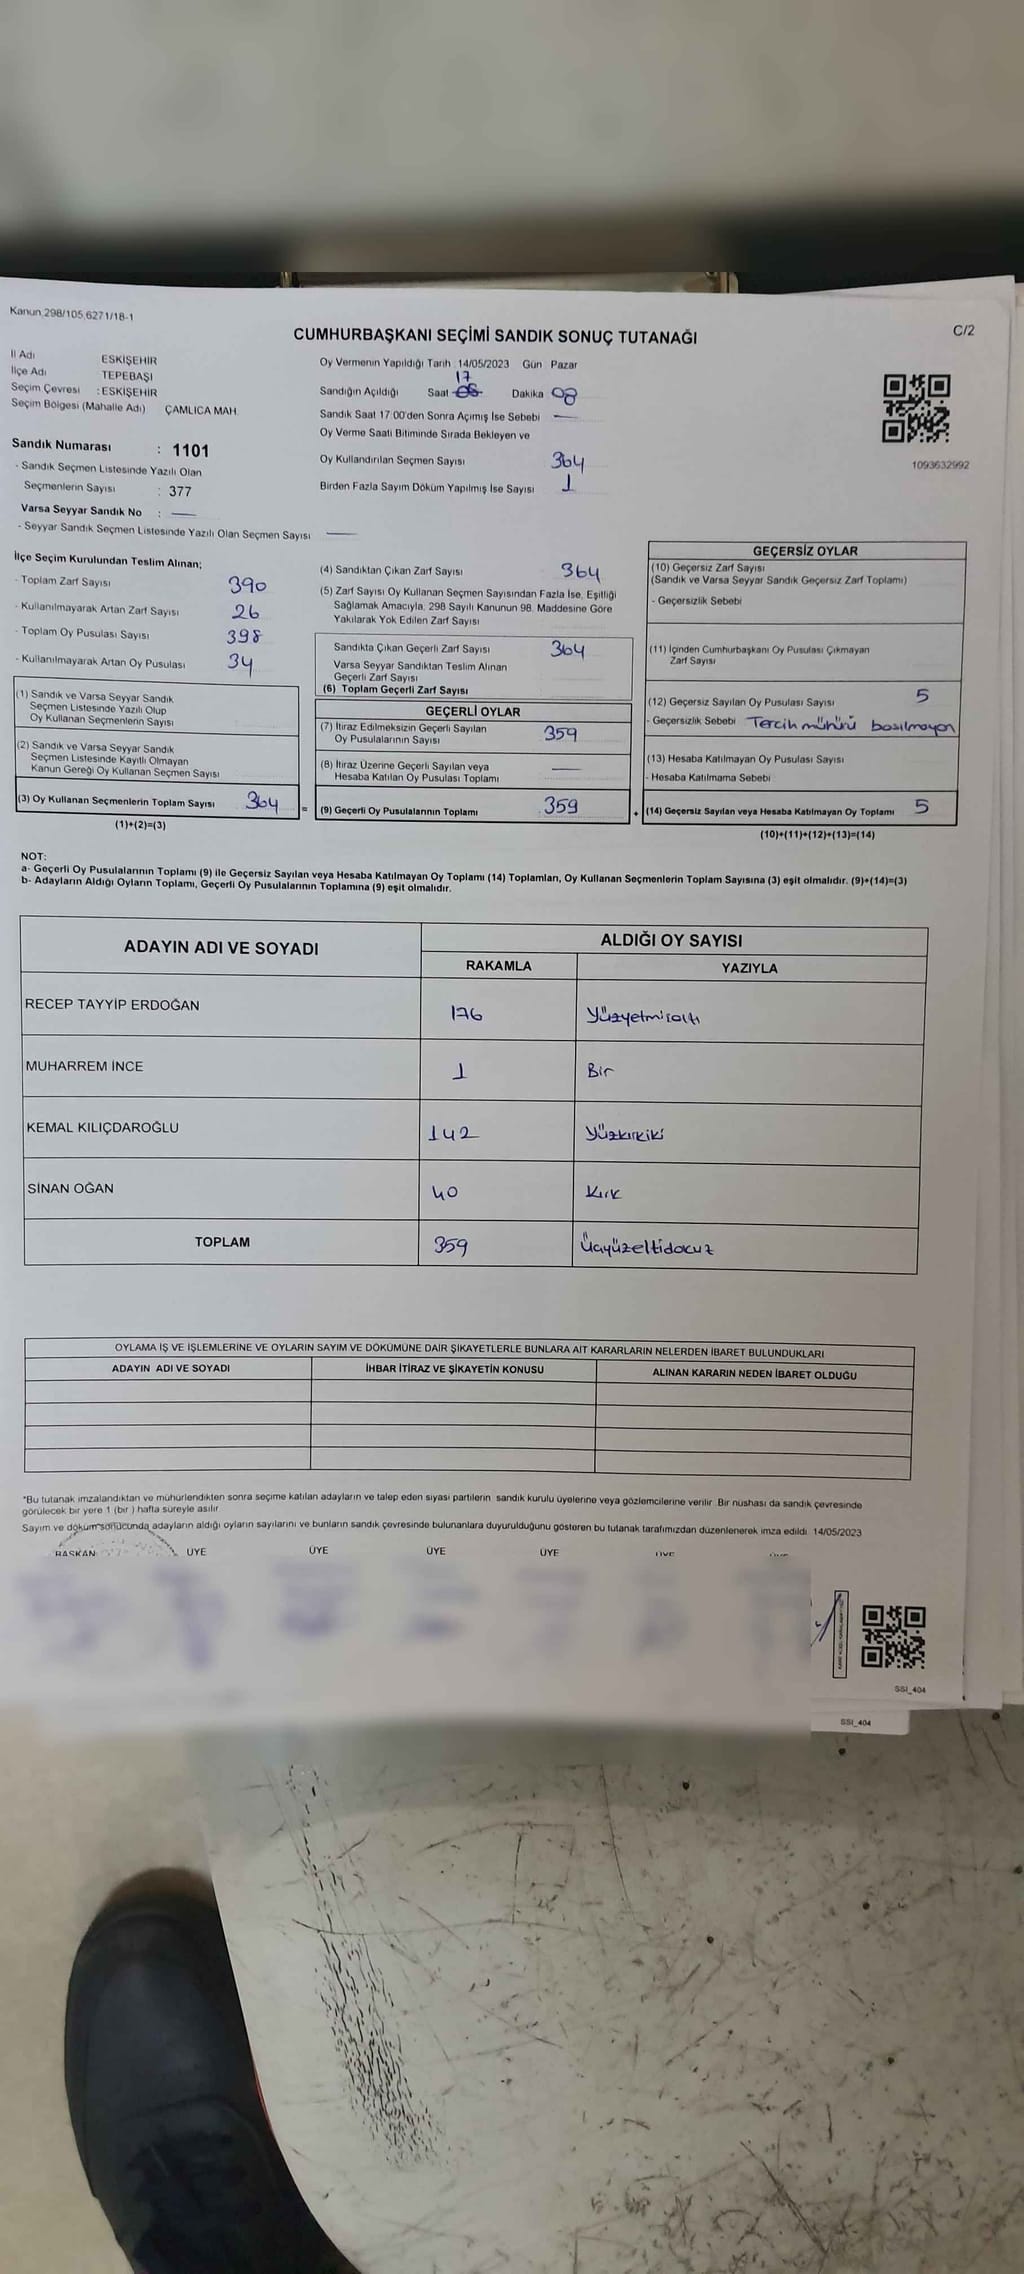 Kanun 298/105,6271/18-1
C/2
CUMHURBAŞKANI SEÇİMİ SANDIK SONUÇ TUTANAĞI
İl Adı ESKİŞEHİR
İlçe Adı TEPEBAŞI
Seçim Çevresi : ESKİŞEHİR
Seçim Bölgesi (Mahalle Adı) ÇAMLICA MAH.
Sandık Numarası : 1101
- Sandık Seçmen Listesinde Yazılı Olan
Seçmenlerin Sayısı : 377
Varsa Seyyar Sandık No : —
- Seyyar Sandık Seçmen Listesinde Yazılı Olan Seçmen Sayısı —
Oy Vermenin Yapıldığı Tarih 14/05/2023 Gün Pazar
17
Sandığın Açıldığı Saat Dakika 08
Sandık Saat 17:00'den Sonra Açımış İse Sebebi —
Oy Verme Saati Bitiminde Sırada Bekleyen ve
Oy Kullandırılan Seçmen Sayısı 364
Birden Fazla Sayım Döküm Yapılmış İse Sayısı 1
1093632992
İlçe Seçim Kurulundan Teslim Alınan;
- Toplam Zarf Sayısı 390
- Kullanılmayarak Artan Zarf Sayısı 26
- Toplam Oy Pusulası Sayısı 398
- Kullanılmayarak Artan Oy Pusulası 34
(1) Sandık ve Varsa Seyyar Sandık
Seçmen Listesinde Yazılı Olup
Oy Kullanan Seçmenlerin Sayısı
(2) Sandık ve Varsa Seyyar Sandık
Seçmen Listesinde Kayıtlı Olmayan
Kanun Gereği Oy Kullanan Seçmen Sayısı
(3) Oy Kullanan Seçmenlerin Toplam Sayısı 364
(1)+(2)=(3)
=
(4) Sandıktan Çıkan Zarf Sayısı 364
(5) Zarf Sayısı Oy Kullanan Seçmen Sayısından Fazla İse, Eşitliği
Sağlamak Amacıyla, 298 Sayılı Kanunun 98. Maddesine Göre
Yakılarak Yok Edilen Zarf Sayısı
Sandıkta Çıkan Geçerli Zarf Sayısı 364
Varsa Seyyar Sandıktan Teslim Alınan
Geçerli Zarf Sayısı
(6) Toplam Geçerli Zarf Sayısı
GEÇERLİ OYLAR
(7) İtiraz Edilmeksizin Geçerli Sayılan
Oy Pusulalarının Sayısı 359
(8) İtiraz Üzerine Geçerli Sayılan veya
Hesaba Katılan Oy Pusulası Toplamı —
(9) Geçerli Oy Pusulalarının Toplamı 359
+
GEÇERSİZ OYLAR
(10) Geçersiz Zarf Sayısı
(Sandık ve Varsa Seyyar Sandık Geçersiz Zarf Toplamı)
- Geçersizlik Sebebi
(11) İçinden Cumhurbaşkanı Oy Pusulası Çıkmayan
Zarf Sayısı
(12) Geçersiz Sayılan Oy Pusulası Sayısı 5
- Geçersizlik Sebebi Tercih mühürü basılmayan
(13) Hesaba Katılmayan Oy Pusulası Sayısı
- Hesaba Katılmama Sebebi
(14) Geçersiz Sayılan veya Hesaba Katılmayan Oy Toplamı 5
(10)+(11)+(12)+(13)=(14)
NOT:
a- Geçerli Oy Pusulalarının Toplamı (9) ile Geçersiz Sayılan veya Hesaba Katılmayan Oy Toplamı (14) Toplamları, Oy Kullanan Seçmenlerin Toplam Sayısına (3) eşit olmalıdır. (9)+(14)=(3)
b- Adayların Aldığı Oyların Toplamı, Geçerli Oy Pusulalarının Toplamına (9) eşit olmalıdır.
ADAYIN ADI VE SOYADI ALDIĞI OY SAYISI
RAKAMLA YAZIYLA
RECEP TAYYİP ERDOĞAN 176 Yüzyetmişaltı
MUHARREM İNCE 1 Bir
KEMAL KILIÇDAROĞLU 142 Yüzkırkiki
SİNAN OĞAN 40 Kırk
TOPLAM 359 Üçyüzellidokuz
OYLAMA İŞ VE İŞLEMLERİNE VE OYLARIN SAYIM VE DÖKÜMÜNE DAİR ŞİKAYETLERLE BUNLARA AİT KARARLARIN NELERDEN İBARET BULUNDUKLARI
ADAYIN ADI VE SOYADI İHBAR İTİRAZ VE ŞİKAYETİN KONUSU ALINAN KARARIN NEDEN İBARET OLDUĞU
*Bu tutanak imzalandıktan ve mühürlendikten sonra seçime katılan adayların ve talep eden siyasi partilerin sandık kurulu üyelerine veya gözlemcilerine verilir. Bir nüshası da sandık çevresinde
görülecek bir yere 1 (bir ) hafta süreyle asılır.
Sayım ve döküm sonucunda adayların aldığı oyların sayılarını ve bunların sandık çevresinde bulunanlara duyurulduğunu gösteren bu tutanak tarafımızdan düzenlenerek imza edildi. 14/05/2023
BAŞKAN ÜYE ÜYE ÜYE ÜYE ÜYE ÜYE
SSI_404
SSI_404